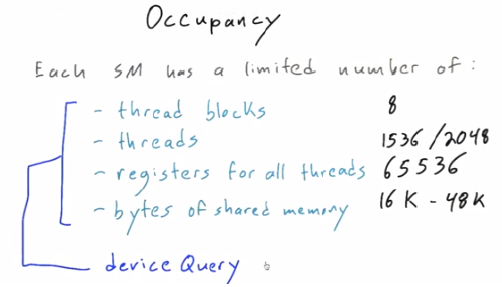 Occupancy
Each SM has a limited number of:
- thread blocks 8
- threads 1536/2048
- registers for all threads 65536
- bytes of shared memory 16K - 48K
deviceQuery